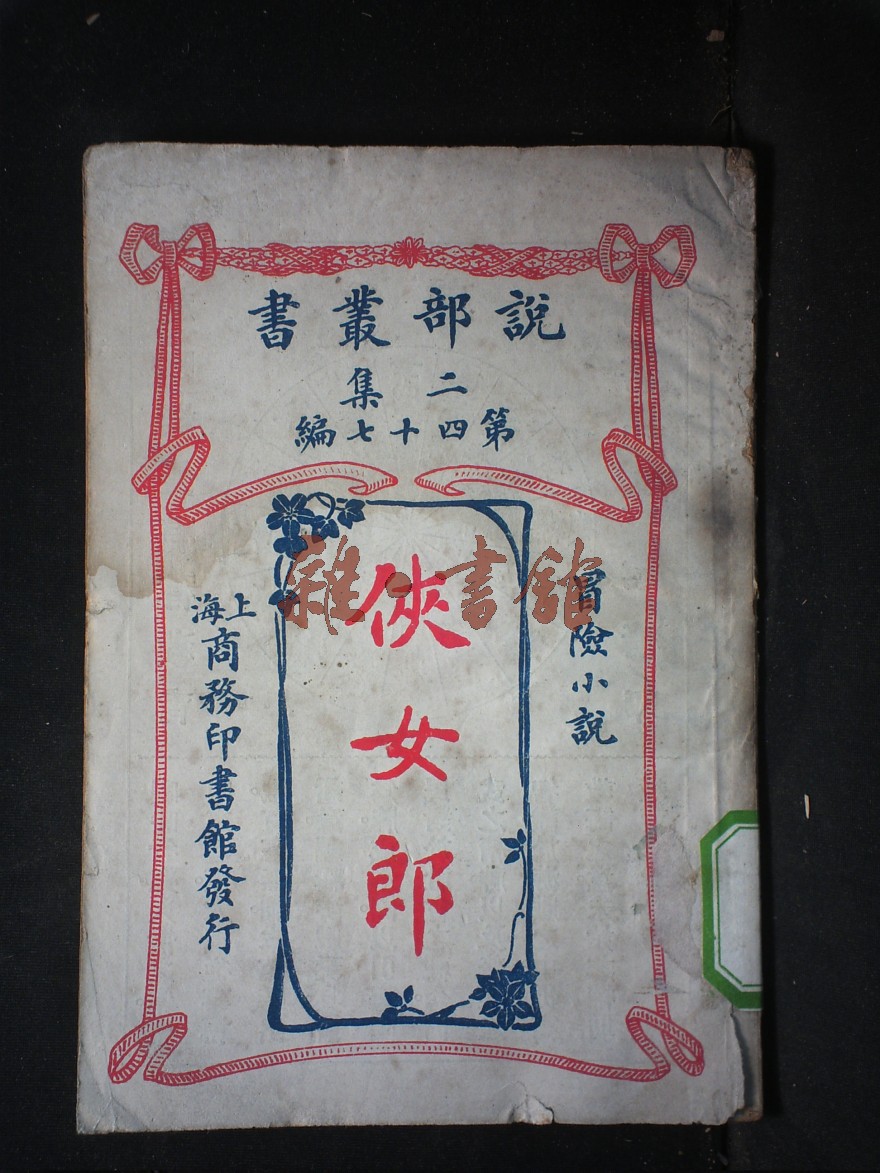 說部叢書
二集
第四十七編
冒險小說
俠女郎
上海
商務印書館發行
雜·書館